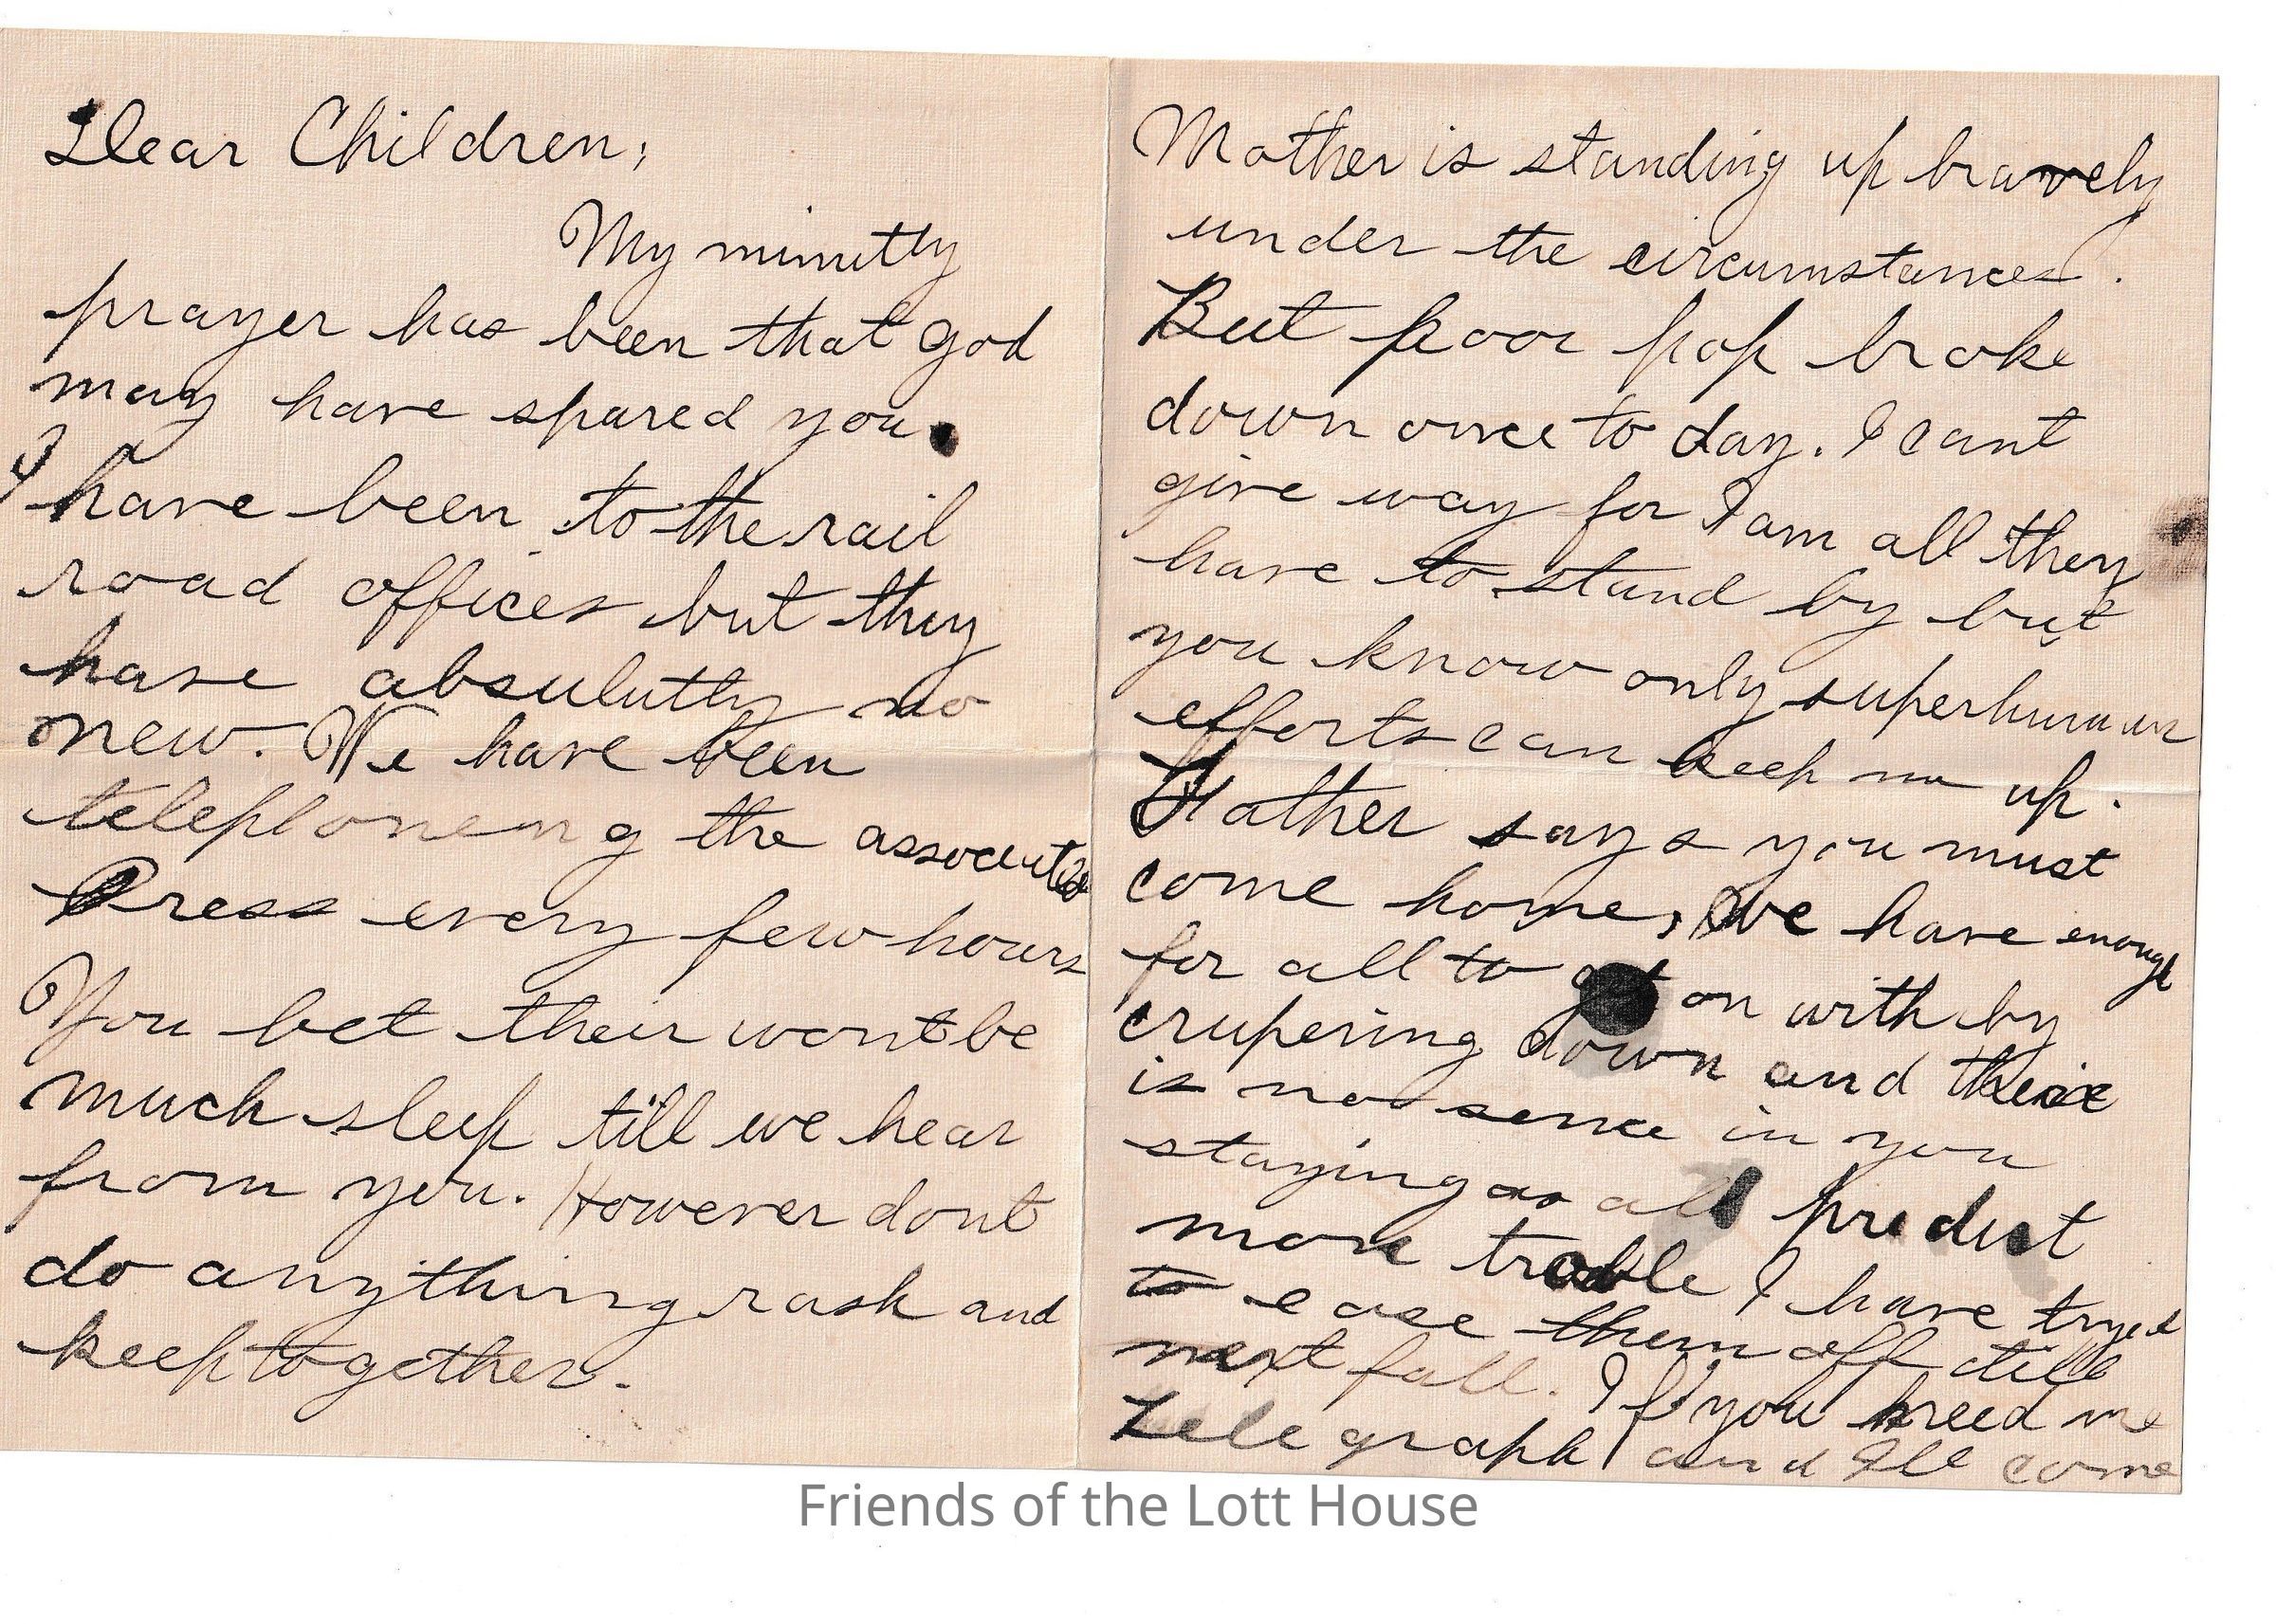 Dear Children;
My minutly
prayer has been that God
may have spared you.
I have been to the rail
road offices but they
have absulutly no
new. We have been
telephoneing the associated
Press every few hours
You bet their wont be
much sleep till we hear
from you. However dont
do anything rash and
keep together.
Mother is standing up bravely
under the circumstances.
But poor pop broke
down once to day. I cant
give way for I am all they
have to stand by but
you know only superhuman
efforts can keep me up.
Father says you must
come home, we have enough
for all to get on with by
crupering down and their
is no sence in you
staying as all predict
more trouble I have tryed
to ease them off till
next fall. If you need me
Telegraph and Ill come
Friends of the Lott House